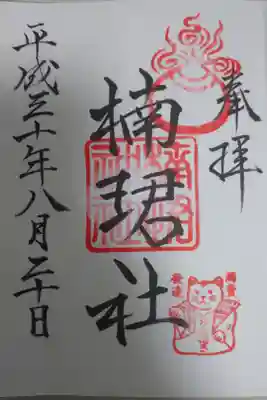 奉拝
楠珺社
平成三十年八月二十日